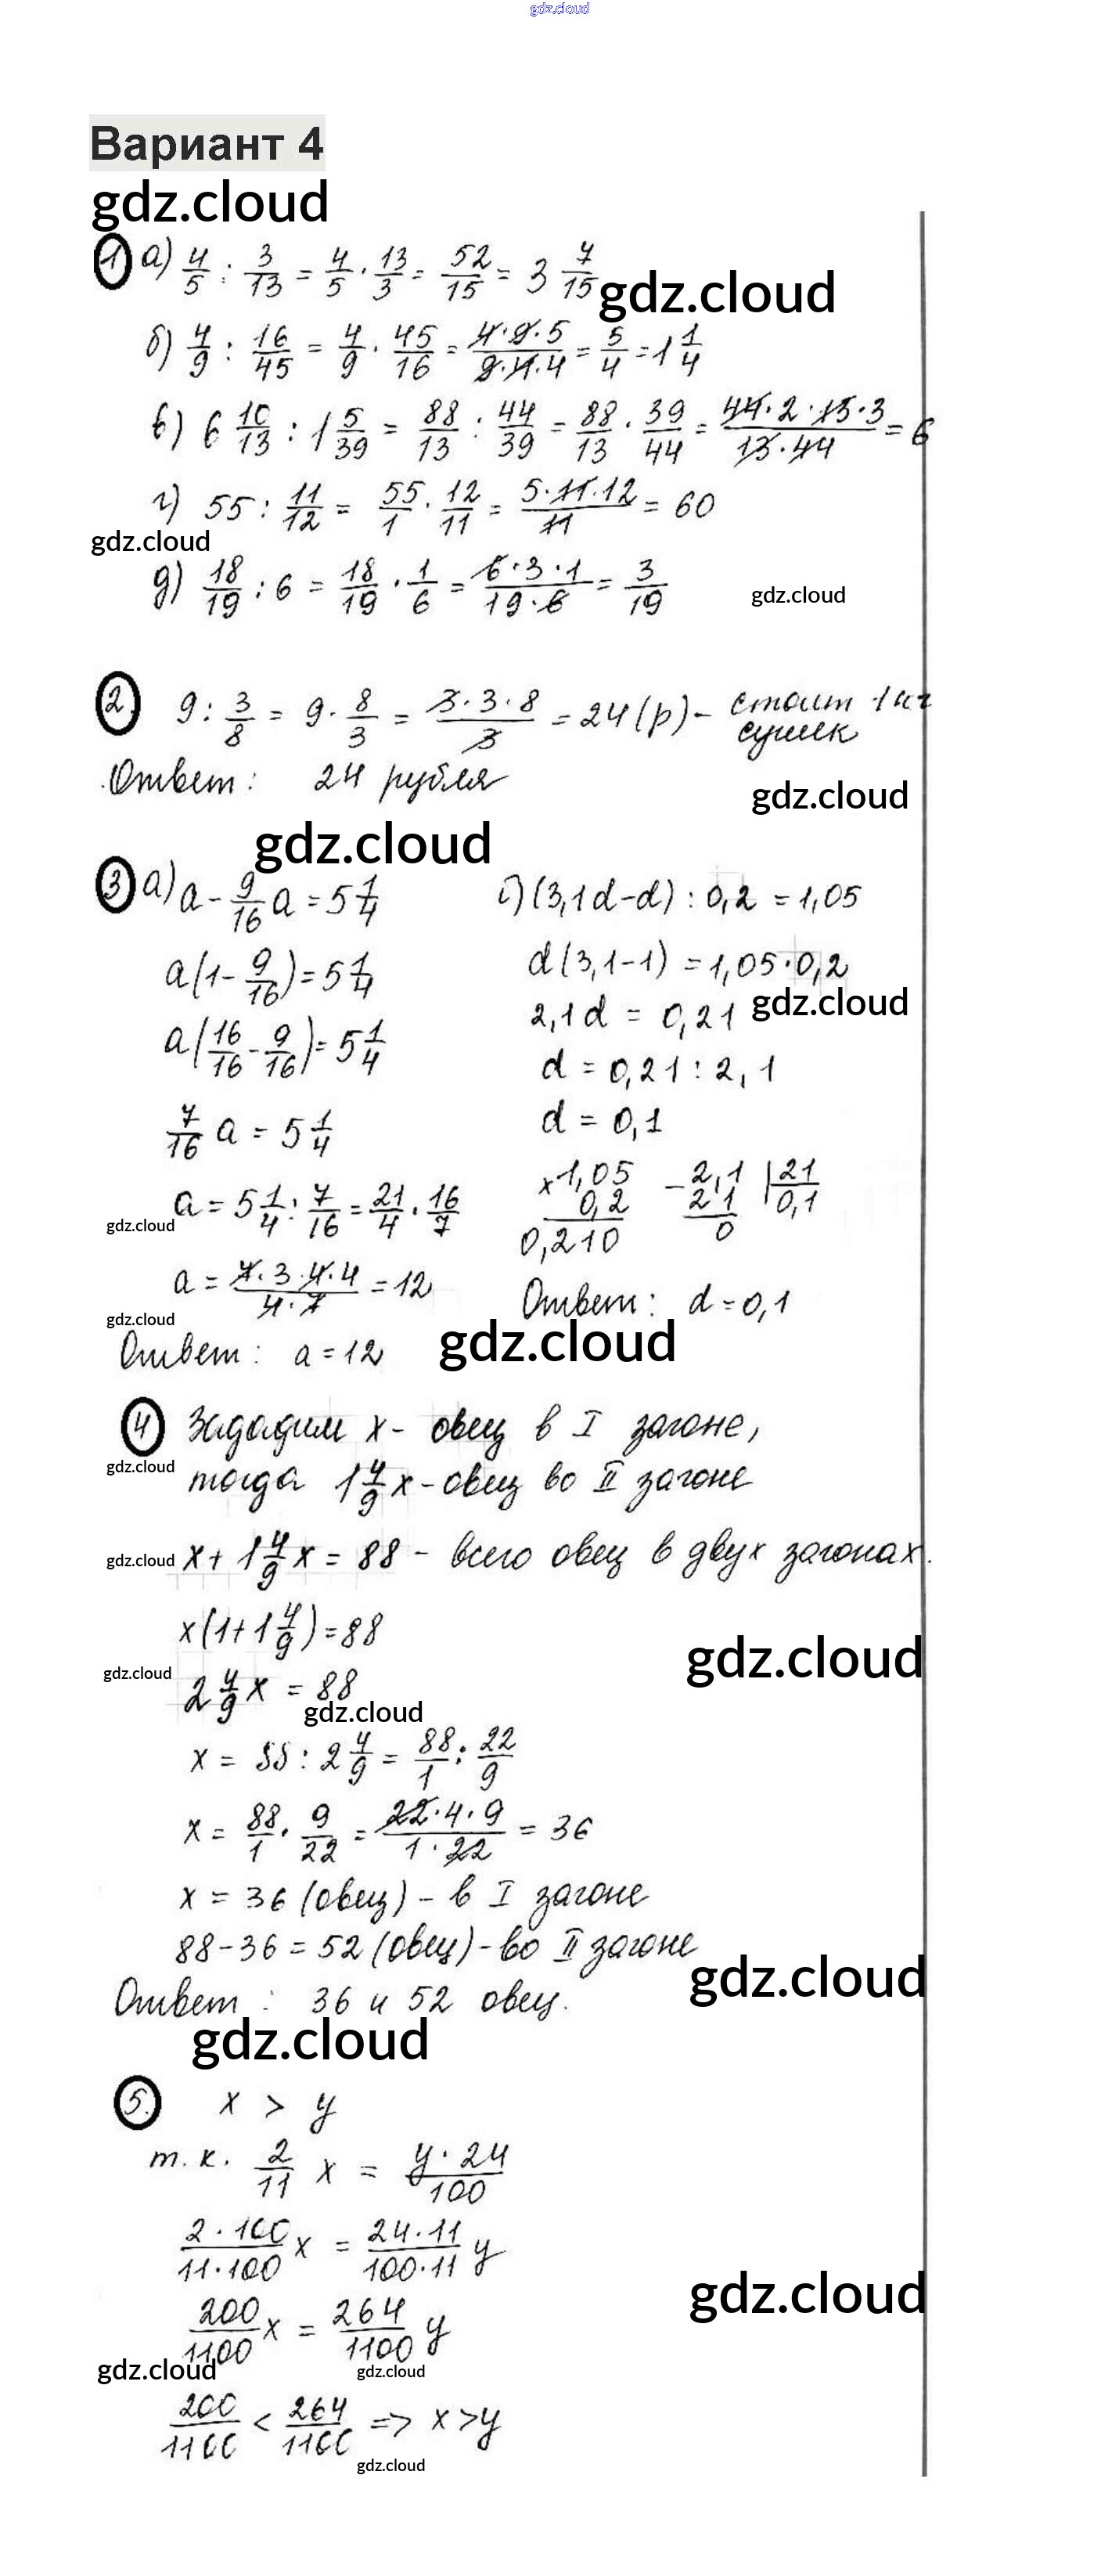 gdz.cloud
Вариант 4
gdz.cloud
1 а) 4/5 : 3/13 = 4/5 · 13/3 = 52/15 = 3 7/15
gdz.cloud
б) 4/9 : 16/45 = 4/9 · 45/16 = 4·9·5/9·4·4 = 5/4 = 1 1/4
в) 6 10/13 : 1 5/39 = 88/13 : 44/39 = 88/13 · 39/44 = 44·2·13·3/13·44 = 6
г) 55 : 11/12 = 55/1 · 12/11 = 5·11·12/11 = 60
gdz.cloud
д) 18/19 : 6 = 18/19 · 1/6 = 6·3·1/19·6 = 3/19
gdz.cloud
2. 9 : 3/8 = 9 · 8/3 = 3·3·8/3 = 24 (р) – стоит 1 кг
сушек
Ответ: 24 рубля
gdz.cloud
gdz.cloud
3 а) a - 9/16 a = 5 1/4
a(1 - 9/16) = 5 1/4
a(16/16 - 9/16) = 5 1/4
7/16 a = 5 1/4
a = 5 1/4 : 7/16 = 21/4 · 16/7
gdz.cloud
a = 7·3·4·4/4·7 = 12
gdz.cloud
Ответ: a = 12
б) (3,1d - d) : 0,2 = 1,05
d(3,1 - 1) = 1,05·0,2
2,1d = 0,21
gdz.cloud
d = 0,21 : 2,1
d = 0,1
×1,05 -2,1 |21
0,2 21 0,1
0,210 0
Ответ: d = 0,1
gdz.cloud
4 Зададим x - овец в I загоне,
gdz.cloud
тогда 1 4/9 x - овец во II загоне
gdz.cloud
x + 1 4/9 x = 88 - всего овец в двух загонах.
x(1 + 1 4/9) = 88
gdz.cloud
gdz.cloud
2 4/9 x = 88
gdz.cloud
x = 88 : 2 4/9 = 88/1 : 22/9
x = 88/1 · 9/22 = 22·4·9/1·22 = 36
x = 36 (овец) - в I загоне
88 - 36 = 52 (овец) - во II загоне
gdz.cloud
Ответ: 36 и 52 овец.
gdz.cloud
5. x > y
т.к. 2/11 x = y·24/100
2·100/11·100 x = 24·11/100·11 y
gdz.cloud
200/1100 x = 264/1100 y
gdz.cloud
gdz.cloud
200/1100 < 264/1100 => x > y
gdz.cloud